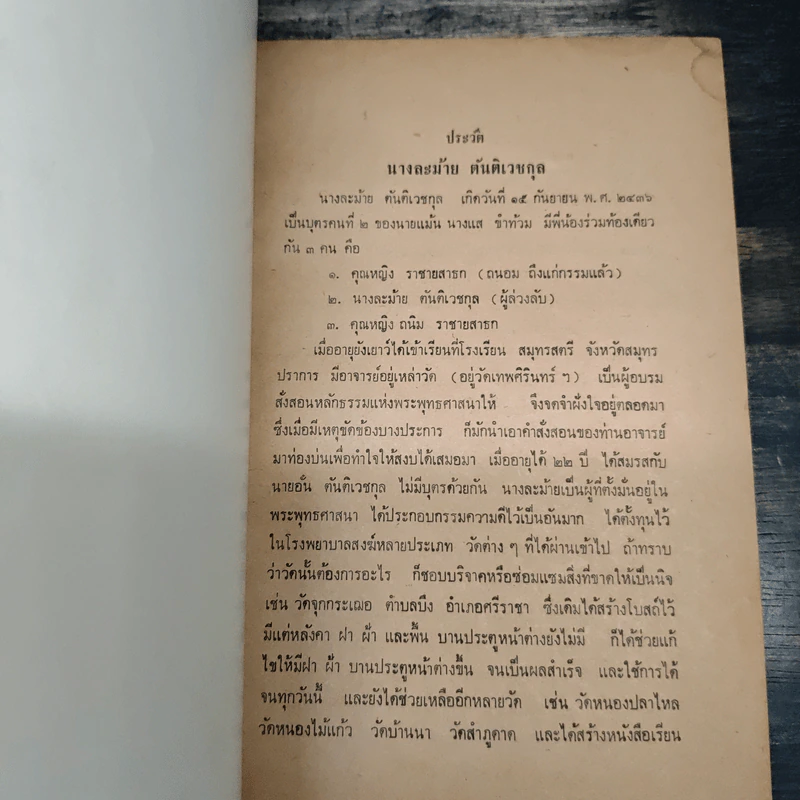 ประวัติ
นางละม้าย ตันติเวชกุล
นางละม้าย ตันติเวชกุล เกิดวันที่ ๑๕ กันยายน พ.ศ. ๒๔๓๖
เป็นบุตรคนที่ ๒ ของนายแม้น นางแส ขำท้วม มีพี่น้องร่วมท้องเดียว
กัน ๓ คน คือ
๑. คุณหญิง ราชายสาธก (ถนอม ถึงแก่กรรมแล้ว)
๒. นางละม้าย ตันติเวชกุล (ผู้ล่วงลับ)
๓. คุณหญิง ถนิม ราชายสาธก
เมื่ออายุยังเยาว์ได้เข้าเรียนที่โรงเรียน สมุทรสตรี จังหวัดสมุทร
ปราการ มีอาจารย์อยู่เหล่าวัด (อยู่วัดเทพศิรินทร์ ฯ) เป็นผู้อบรม
สั่งสอนหลักธรรมแห่งพระพุทธศาสนาให้ จึงจดจำฝังใจอยู่ตลอดมา
ซึ่งเมื่อมีเหตุขัดข้องบางประการ ก็มักนำเอาคำสั่งสอนของท่านอาจารย์
มาท่องบ่นเพื่อทำใจให้สงบได้เสมอมา เมื่ออายุได้ ๒๒ ปี ได้สมรสกับ
นายอั๋น ตันติเวชกุล ไม่มีบุตรด้วยกัน นางละม้ายเป็นผู้ที่ตั้งมั่นอยู่ใน
พระพุทธศาสนา ได้ประกอบกรรมความดีไว้เป็นอันมาก ได้ตั้งทุนไว้
ในโรงพยาบาลสงฆ์หลายประเภท วัดต่าง ๆ ที่ได้ผ่านเข้าไป ถ้าทราบ
ว่าวัดนั้นต้องการอะไร ก็ชอบบริจาคหรือซ่อมแซมสิ่งที่ขาดให้เป็นนิจ
เช่น วัดจุกกระเฌอ ตำบลบึง อำเภอศรีราชา ซึ่งเดิมได้สร้างโบสถ์ไว้
มีแต่หลังคา ฝา ฝ้า และพื้น บานประตูหน้าต่างยังไม่มี ก็ได้ช่วยแก้
ไขให้มีฝา ฝ้า บานประตูหน้าต่างขึ้น จนเป็นผลสำเร็จ และใช้การได้
จนทุกวันนี้ และยังได้ช่วยเหลืออีกหลายวัด เช่น วัดหนองปลาไหล
วัดหนองไม้แก้ว วัดบ้านนา วัดสำภูดาด และได้สร้างหนังสือเรียน